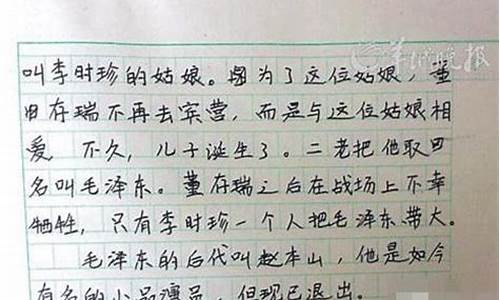 羊城晚报
叫李时珍的姑娘。因为了这位姑娘，董
存瑞不再去宾营，而是与这位姑娘相
爱 不久，儿子诞生了。二老把他取
名叫毛泽东。董存瑞之后在战场上不幸
牺牲，只有李时珍一个人把毛泽东带大。
毛泽东的后代叫赵本山，他是如今
有名的小品演员，但现已退出。